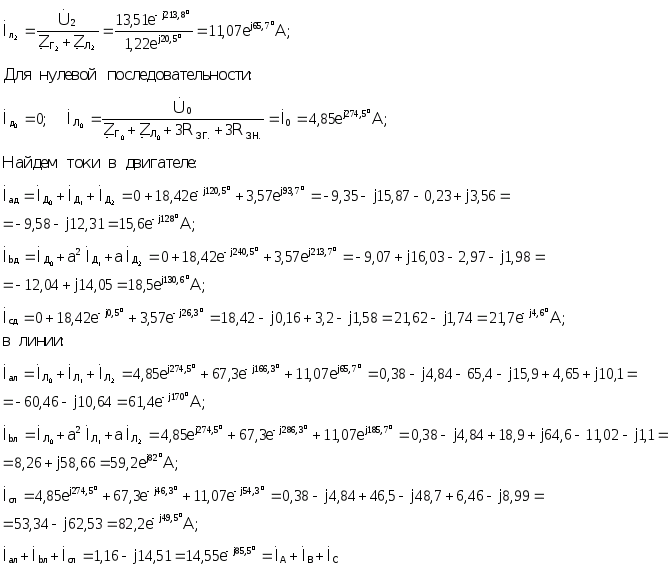 İл₂ = U̇₂ / (Zг₂ + Zл₂) = 13,51e^(- j213,8°) / 1,22e^(j20,5°) = 11,07e^(j65,7°) A;
Для нулевой последовательности:
İд₀ = 0; İл₀ = U̇₀ / (Zг₀ + Zл₀ + 3Rзг. + 3Rзн.) = İ₀ = 4,85e^(j274,5°) A;
Найдем токи в двигателе:
İад = İд₀ + İд₁ + İд₂ = 0 + 18,42e^(- j120,5°) + 3,57e^(j93,7°) = - 9,35 - j15,87 - 0,23 + j3,56 =
= - 9,58 - j12,31 = 15,6e^(- j128°) A;
İbд = İд₀ + a² İд₁ + a İд₂ = 0 + 18,42e^(- j240,5°) + 3,57e^(j213,7°) = - 9,07 + j16,03 - 2,97 - j1,98 =
= - 12,04 + j14,05 = 18,5e^(j130,6°) A;
İсд = 0 + 18,42e^(- j0,5°) + 3,57e^(- j26,3°) = 18,42 - j0,16 + 3,2 - j1,58 = 21,62 - j1,74 = 21,7e^(- j4,6°) A;
в линии:
İал = İл₀ + İл₁ + İл₂ = 4,85e^(j274,5°) + 67,3e^(- j166,3°) + 11,07e^(j65,7°) = 0,38 - j4,84 - 65,4 - j15,9 + 4,65 + j10,1 =
= - 60,46 - j10,64 = 61,4e^(- j170°) A;
İbл = İл₀ + a² İл₁ + a İл₂ = 4,85e^(j274,5°) + 67,3e^(- j286,3°) + 11,07e^(j185,7°) = 0,38 - j4,84 + 18,9 + j64,6 - 11,02 - j1,1 =
= 8,26 + j58,66 = 59,2e^(j82°) A;
İсл = 4,85e^(j274,5°) + 67,3e^(- j46,3°) + 11,07e^(- j54,3°) = 0,38 - j4,84 + 46,5 - j48,7 + 6,46 - j8,99 =
= 53,34 - j62,53 = 82,2e^(- j49,5°) A;
İал + İbл + İсл = 1,16 - j14,51 = 14,55e^(- j85,5°) = İA + İB + İC